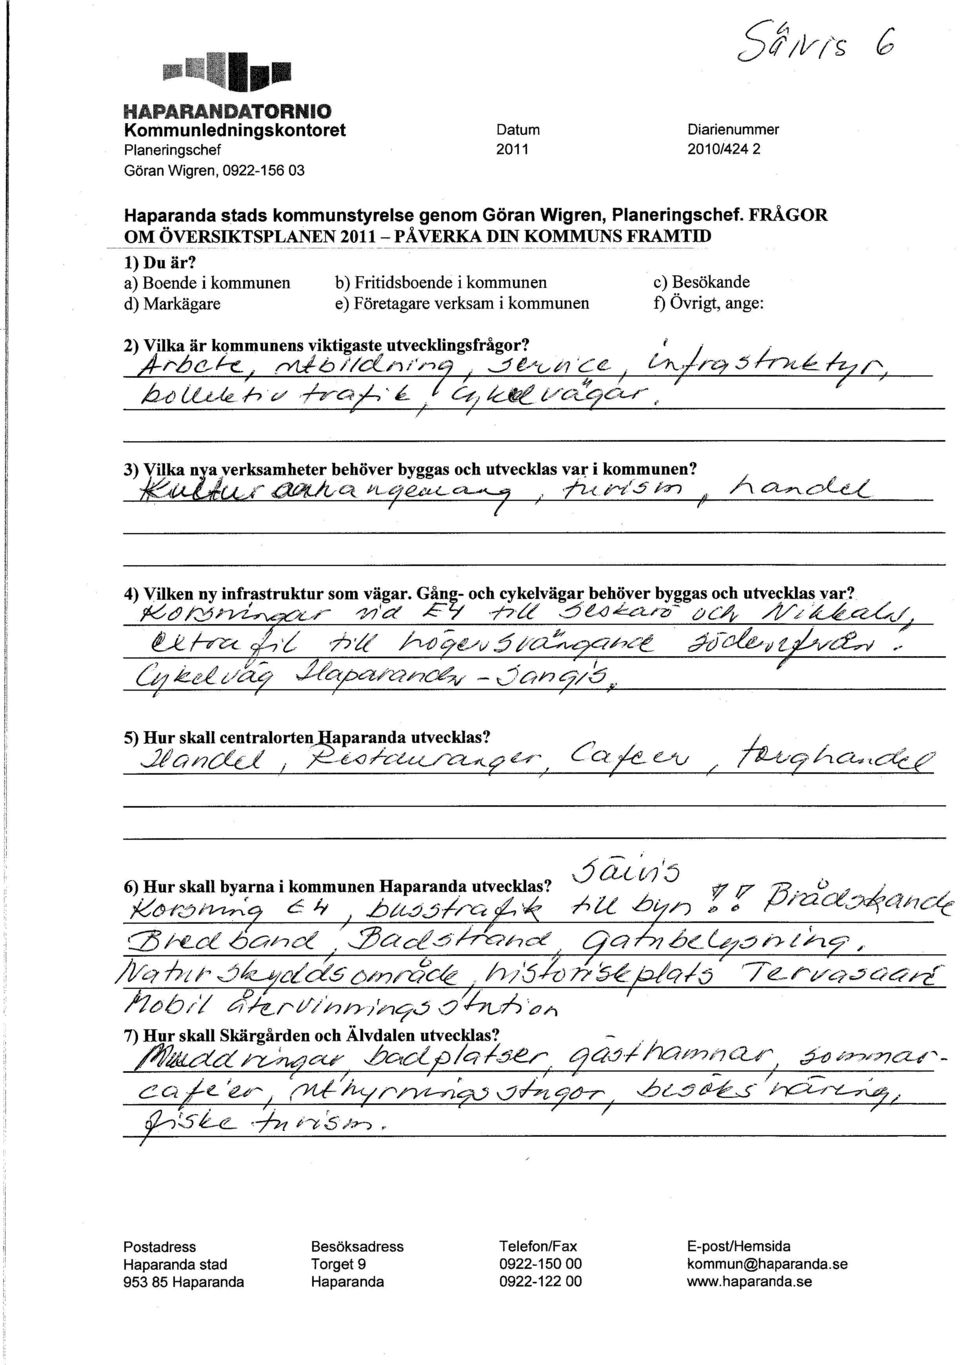 Säivis 6
HAPARANDATORNIO
Kommunledningskontoret
Planeringschef
Göran Wigren, 0922-156 03
Datum
2011
Diarienummer
2010/424 2
Haparanda stads kommunstyrelse genom Göran Wigren, Planeringschef. FRÅGOR
OM ÖVERSIKTSPLANEN 2011 – PÅVERKA DIN KOMMUNS FRAMTID
1) Du är?
a) Boende i kommunen b) Fritidsboende i kommunen c) Besökande
d) Markägare e) Företagare verksam i kommunen f) Övrigt, ange:
2) Vilka är kommunens viktigaste utvecklingsfrågor?
Arbete, utbildning, service, infrastruktyr,
kollektiv trafik, cykelvägar.
3) Vilka nya verksamheter behöver byggas och utvecklas var i kommunen?
Kultur turism, handel
4) Vilken ny infrastruktur som vägar. Gång- och cykelvägar behöver byggas och utvecklas var?
Korsningar vid E4 till Seskarö och Nikkala,
extra fil till högersvängande
Cykelväg Haparanda - Sangis.
5) Hur skall centralorten Haparanda utvecklas?
Handel, Restauranger, Cafeer, torghandel
6) Hur skall byarna i kommunen Haparanda utvecklas? Säivis
Korsning E4, busstrafik till byn !! Brådskande
Bredband, Badstrand, Gatubelysning,
Naturskyddsområde, historisk plats Tervasaari
Mobil återvinningsstation
7) Hur skall Skärgården och Älvdalen utvecklas?
Muddringar, badplatser, gästhamnar, sommar-
caféer, uthyrningsstugor, besöksnäring,
fisketurism.
Postadress
Haparanda stad
953 85 Haparanda
Besöksadress
Torget 9
Haparanda
Telefon/Fax
0922-150 00
0922-122 00
E-post/Hemsida
kommun@haparanda.se
www.haparanda.se